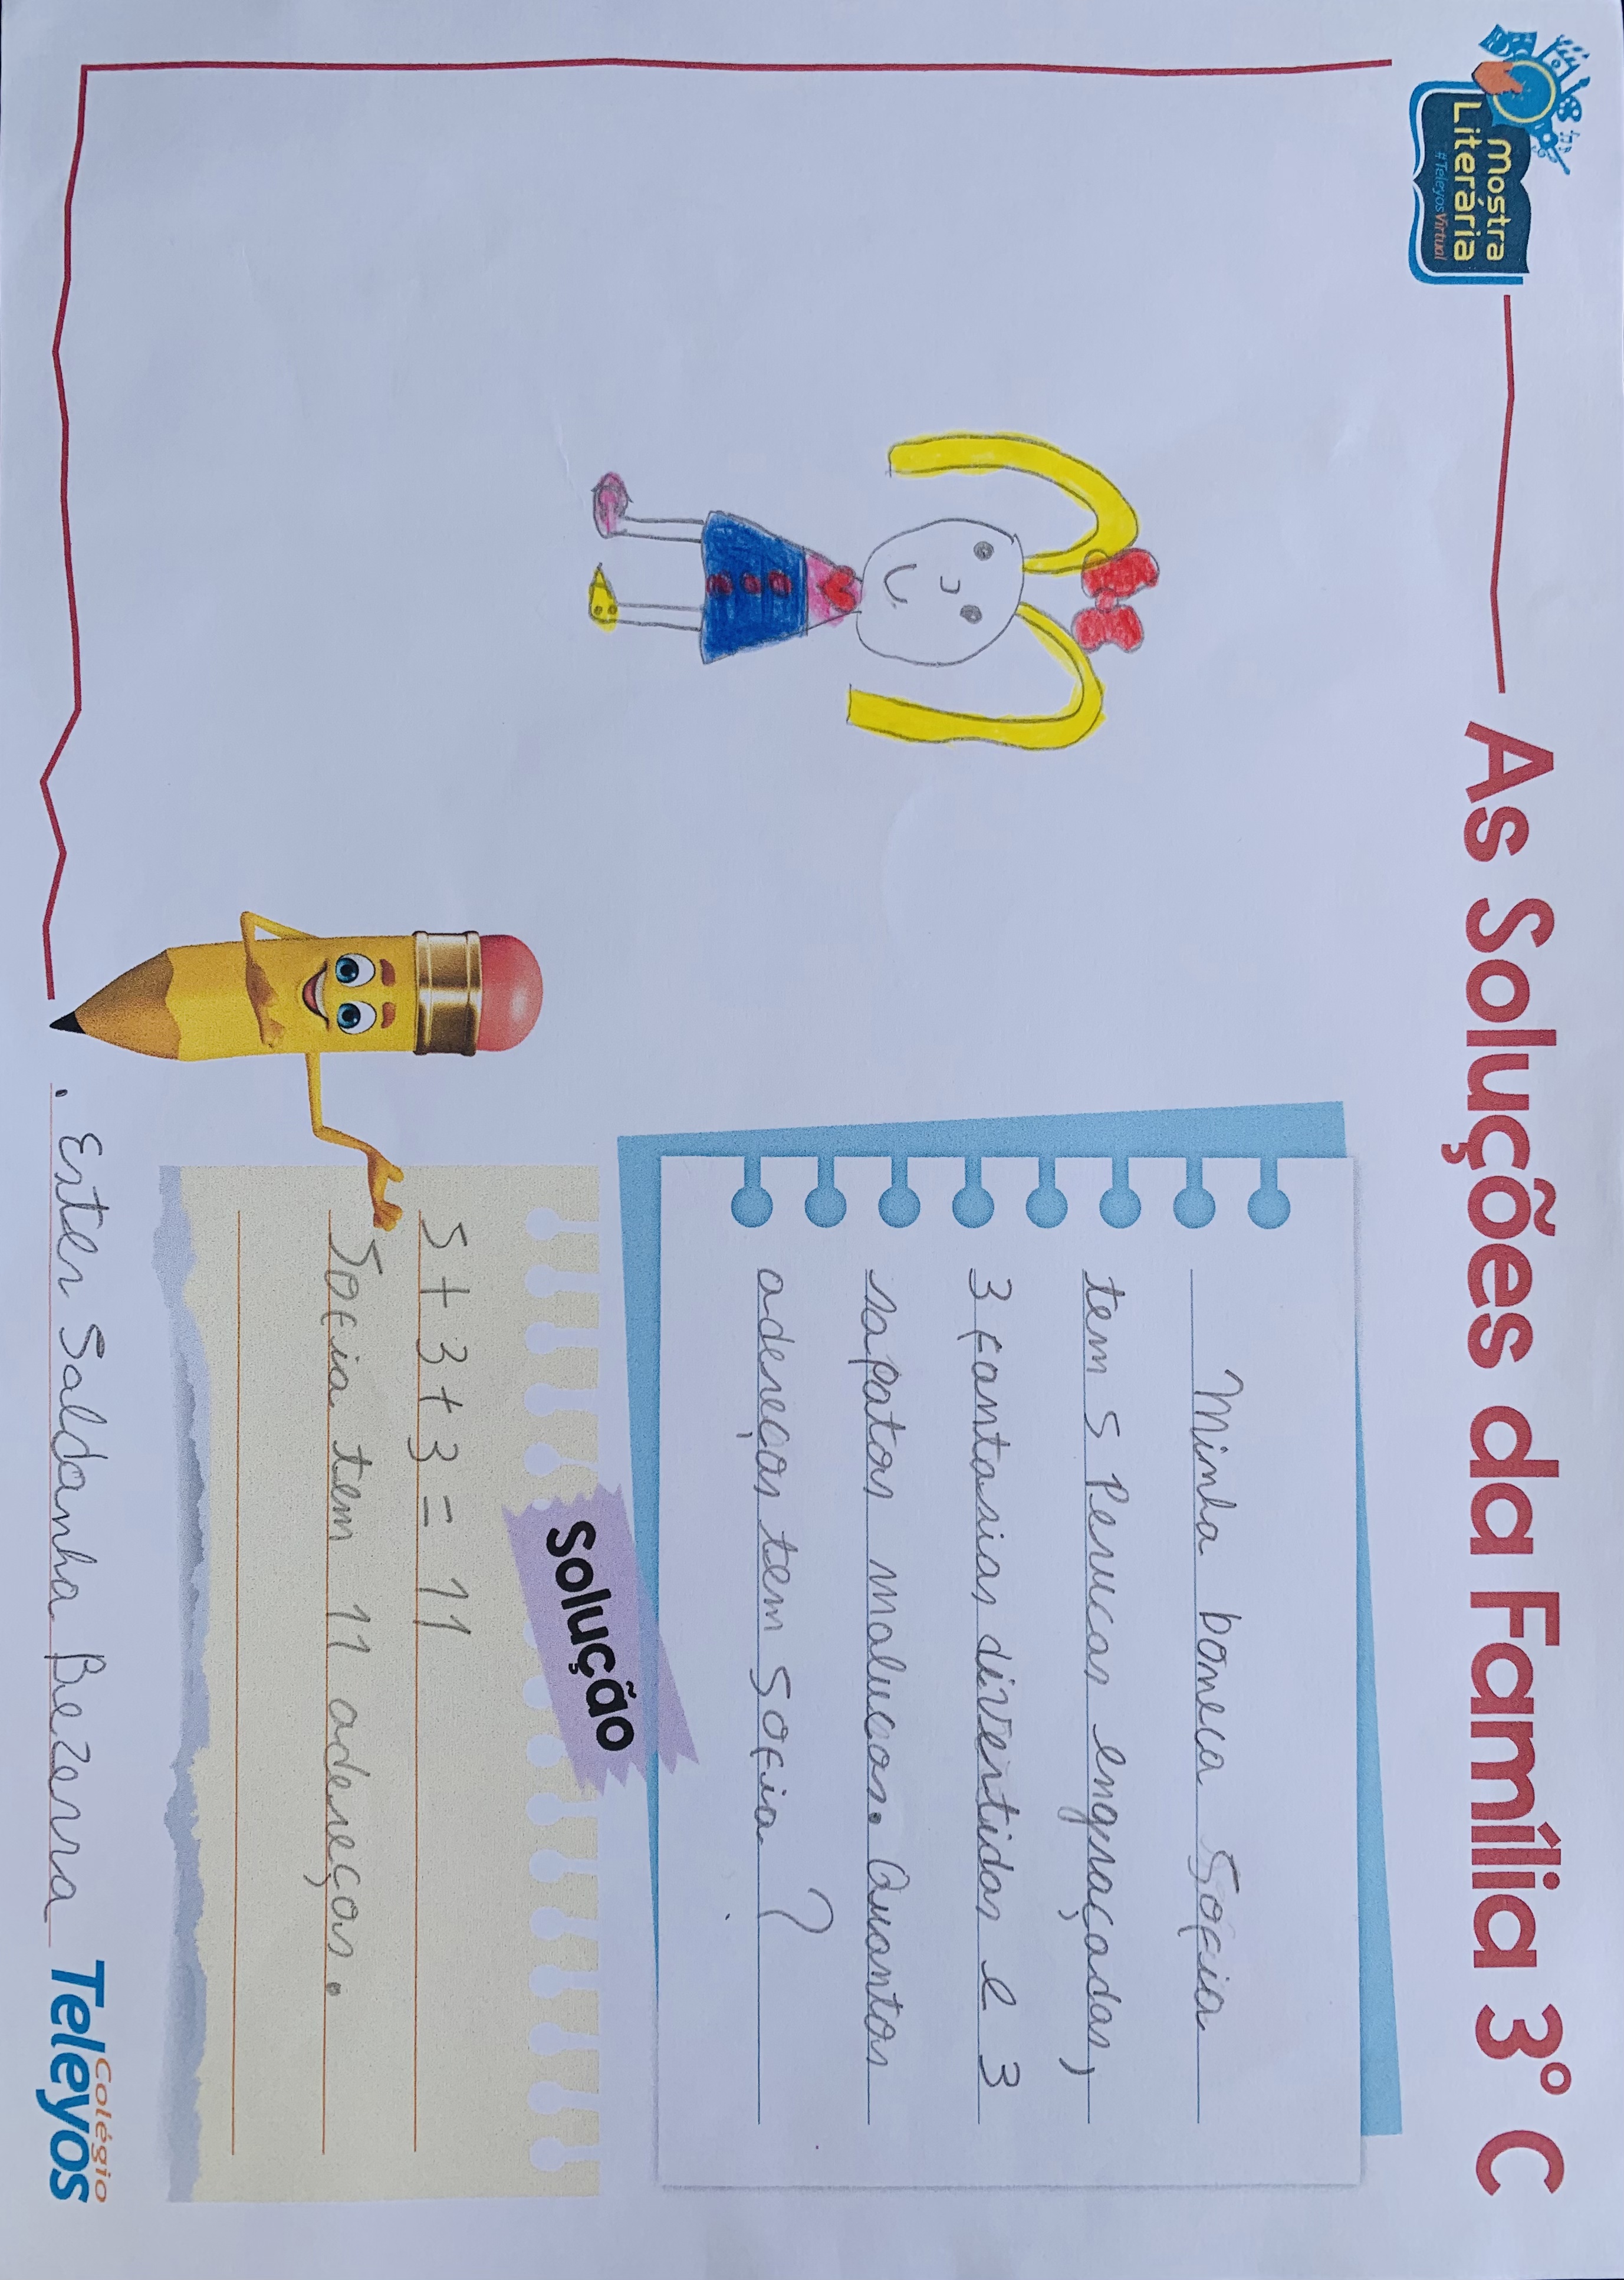 Mostra
Literária
#TeleyosVirtual
As Soluções da Família 3º C
Minha boneca Sofia
tem 5 Perucas engraçadas,
3 fantasias divertidas e 3
sapatos malucos. Quantos
adereços tem Sofia ?
Solução
5 + 3 + 3 = 11
Sofia tem 11 adereços.
. Ester Saldanha Bezerra
Colégio
Teleyos